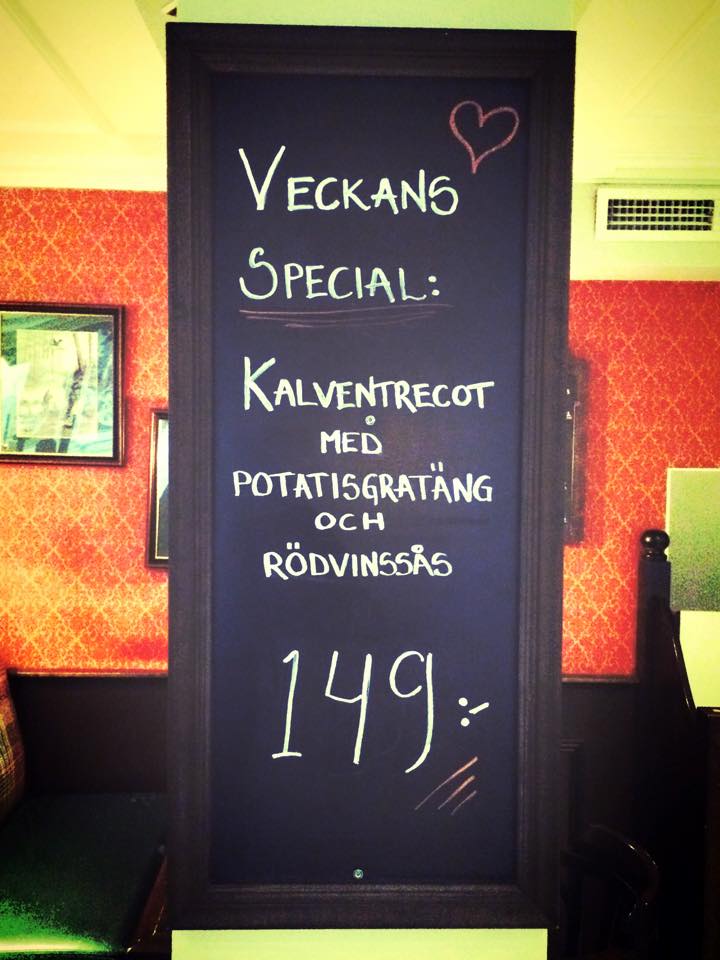 VECKANS
SPECIAL:
KALVENTRECOT
MED
POTATISGRATÄNG
OCH
RÖDVINSSÅS
149:-